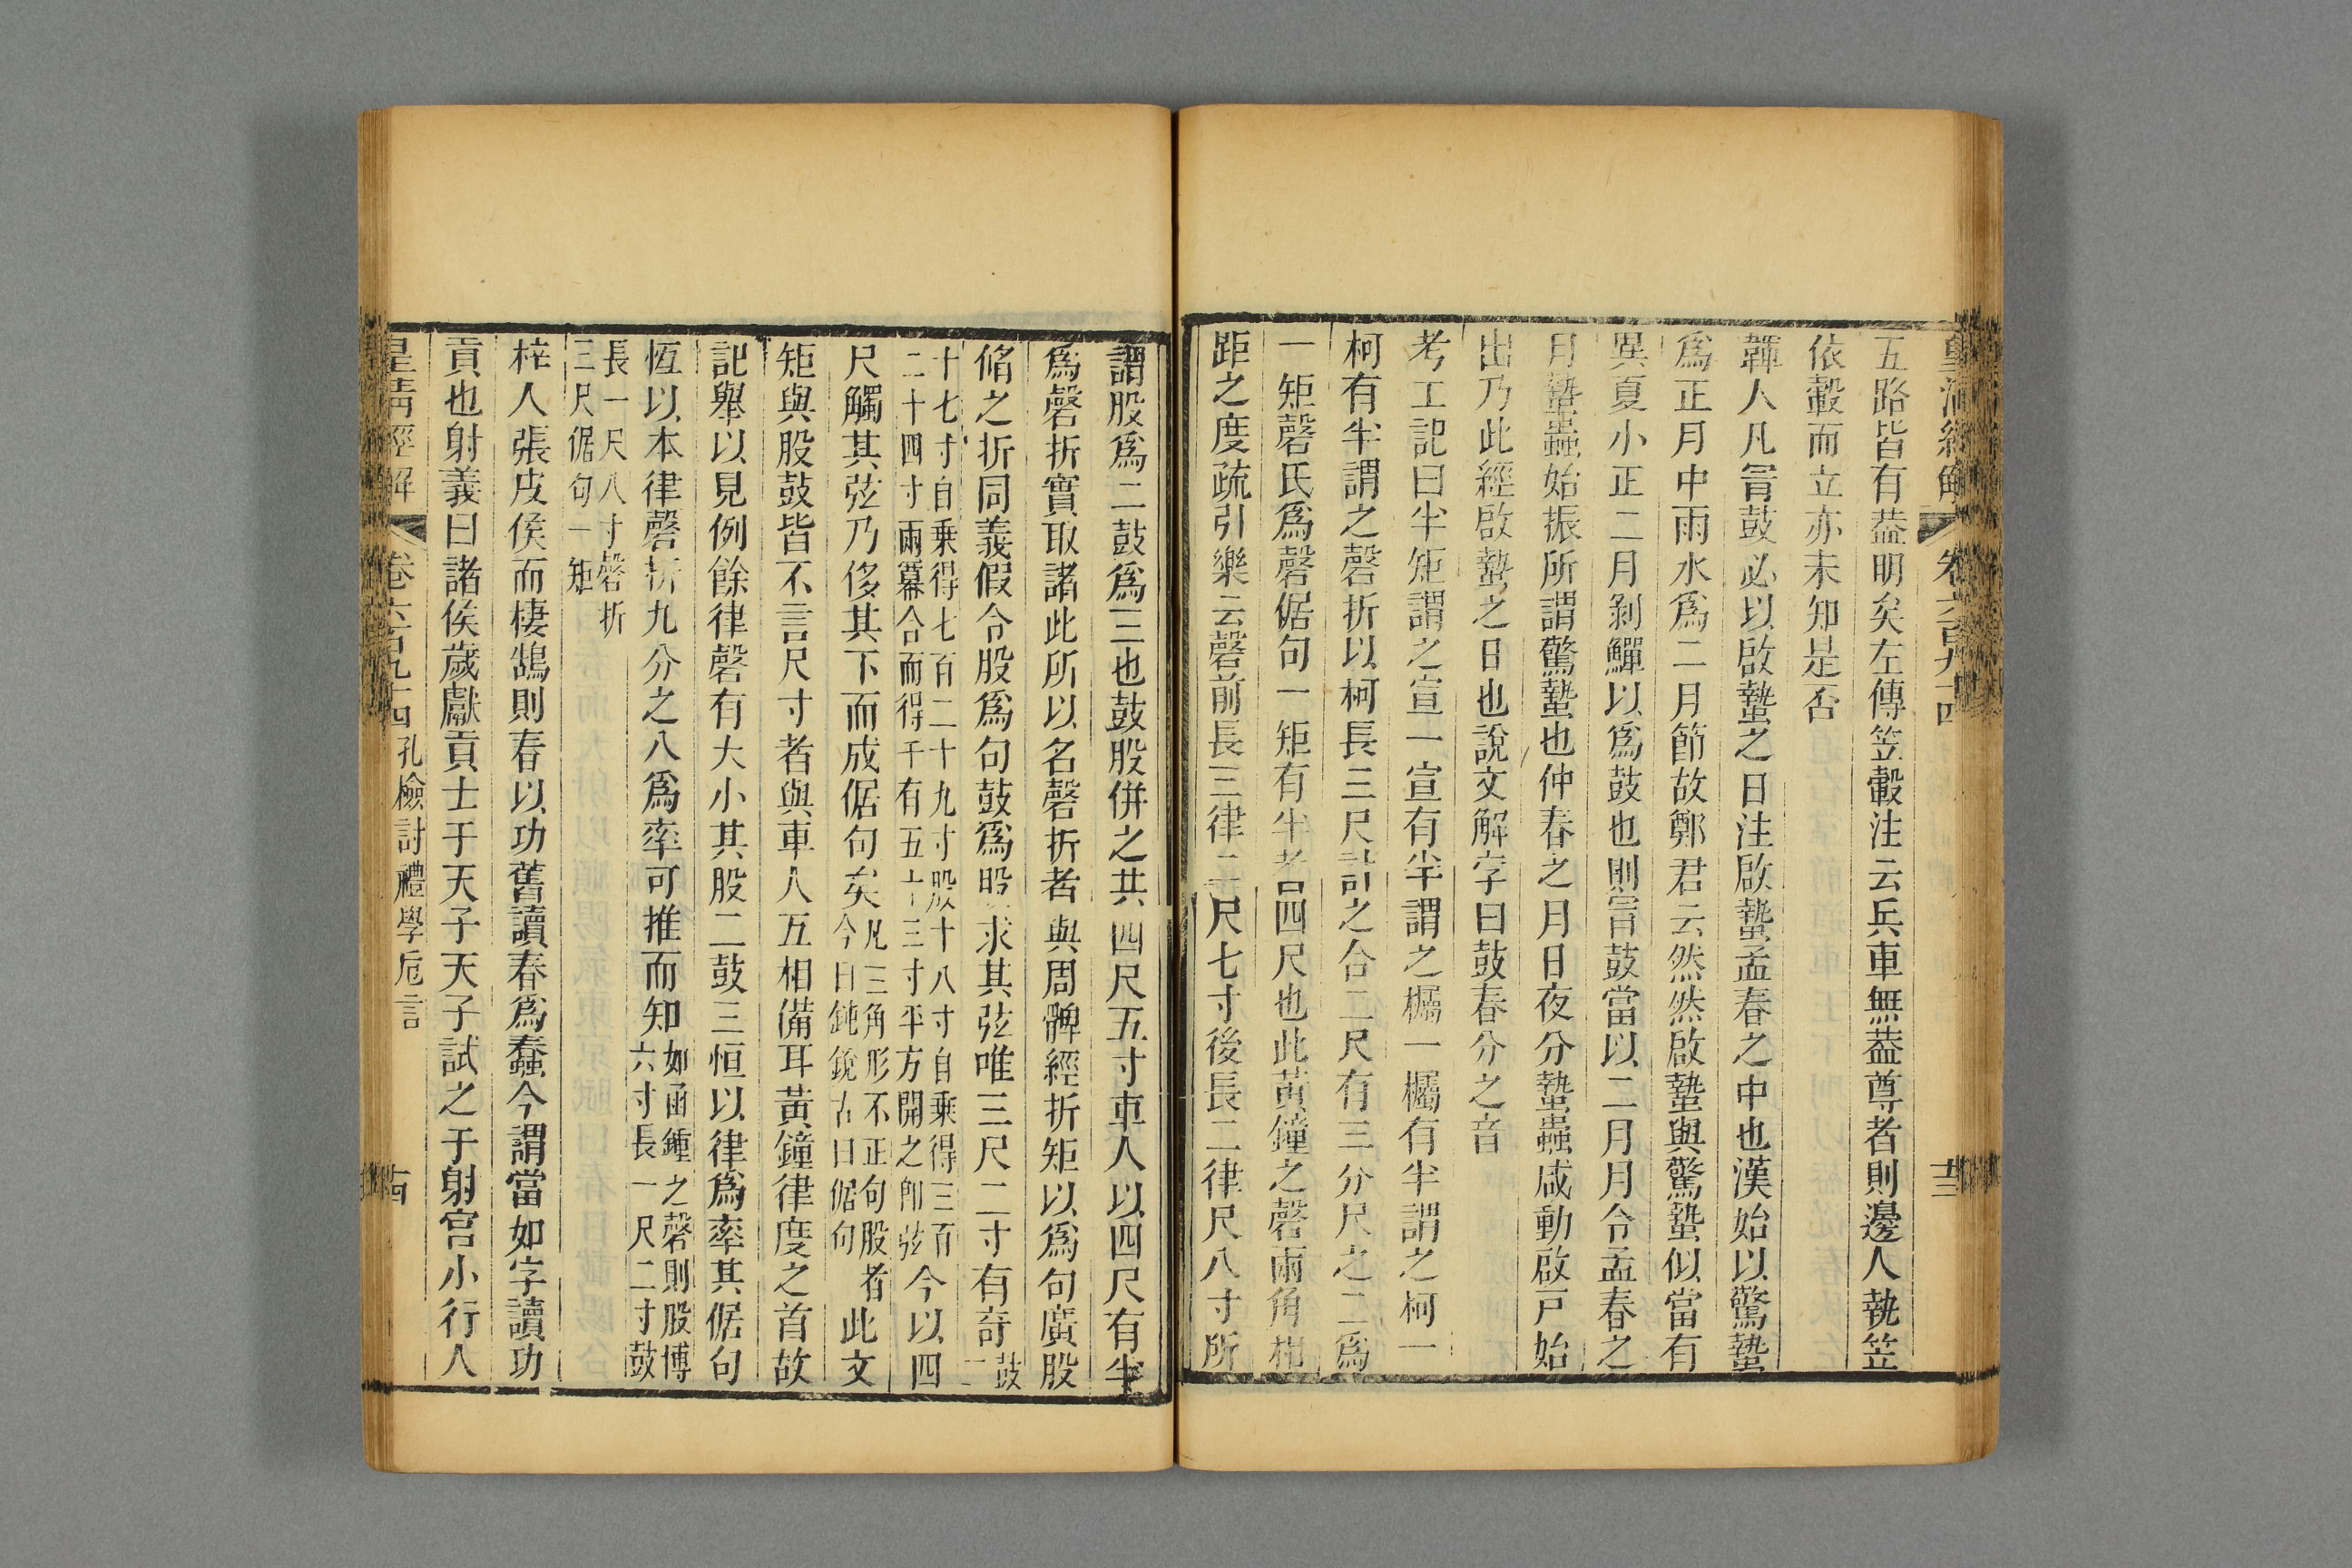 皇清經解 卷六百九十四 十三
五路皆有葢明矣左傳笠轂注云兵車無葢尊者則邊人執笠
依轂而立亦未知是否
韗人凡冒鼓必以啟蟄之日注啟蟄孟春之中也漢始以驚蟄
爲正月中雨水爲二月節故鄭君云然然啟蟄與驚蟄似當有
異夏小正二月剝鱓以爲鼓也則冒鼓當以二月月令孟春之
月蟄蟲始振所謂驚蟄也仲春之月日夜分蟄蟲咸動啟戸始
出乃此經啟蟄之日也說文解字曰鼓春分之音
考工記曰半矩謂之宣一宣有半謂之欘一欘有半謂之柯一
柯有半謂之磬折以柯長三尺計之合二尺有三分尺之二爲
一矩磬氏爲磬倨句一矩有半者四尺也此黃鐘之磬兩角相
距之度疏引樂云磬前長三律二尺七寸後長二律尺八寸所
謂股爲二鼓爲三也鼓股併之共四尺五寸車人以四尺有半
爲磬折實取諸此所以名磬折者與周髀經折矩以爲句廣股
脩之折同義假令股爲句鼓爲股求其弦唯三尺二寸有奇鼓二
十七寸自乗得七百二十九寸股十八寸自乗得三百
二十四寸兩冪合而得千有五十三寸平方開之卽弦今以四
尺觸其弦乃侈其下而成倨句矣凡三角形不正句股者
今曰鈍銳古曰倨句此文
矩與股鼓皆不言尺寸者與車人五相備耳黃鐘律度之首故
記舉以見例餘律磬有大小其股二鼓三恒以律爲率其倨句
恆以本律磬折九分之八爲率可推而知如函鍾之磬則股博
六寸長一尺二寸鼓
長一尺八寸磬折
三尺倨句一矩
梓人張皮侯而棲鵠則春以功舊讀春爲蠢今謂當如字讀功
貢也射義曰諸侯歲獻貢士于天子天子試之于射宮小行人
皇清經解 卷六百九十四 孔檢討禮學卮言 十四